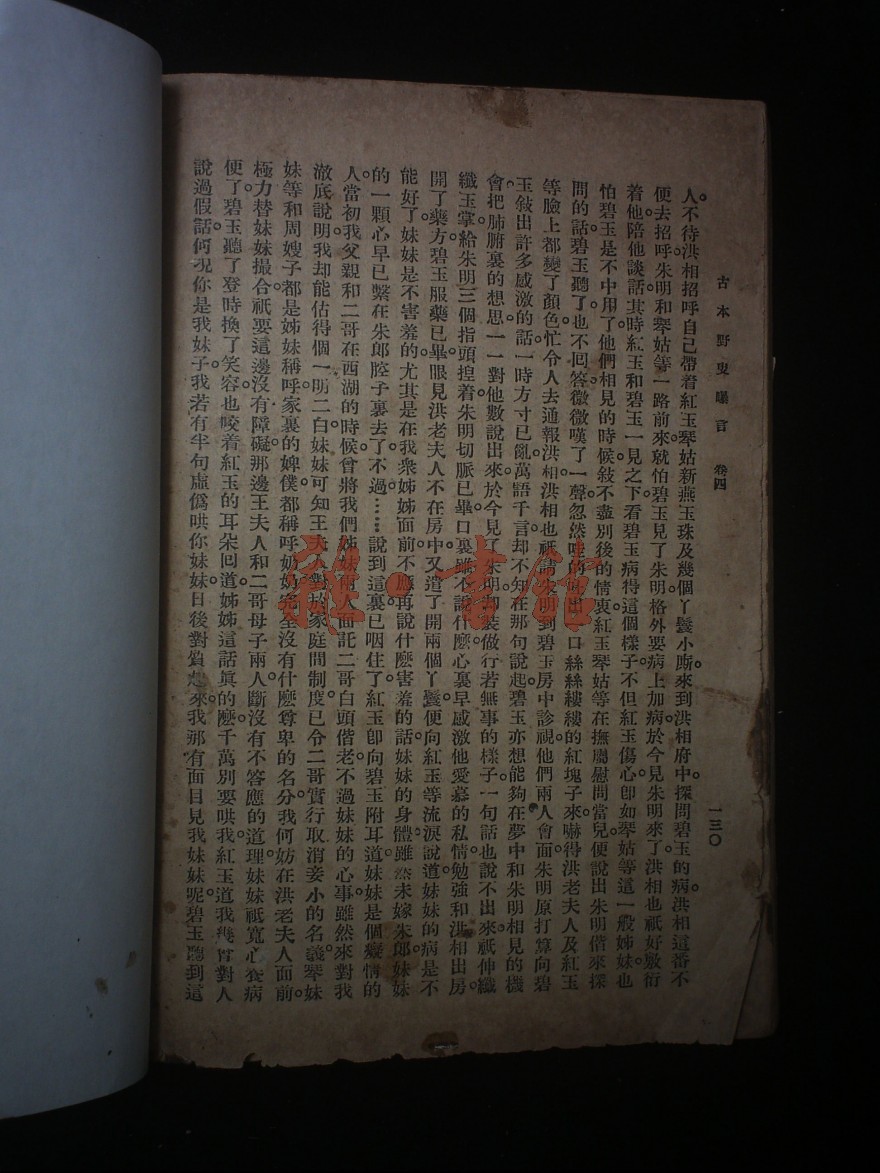 古本野叟曝言 卷四 一三〇
人不待洪相招呼自己帶着紅玉琴姑新燕玉珠及幾個丫鬟小廝來到洪相府中探問碧玉的病洪相這番不
便去招呼朱明和琴姑等一路前來就怕碧玉見了朱明格外要病上加病於今見朱明來了洪相也祇好敷衍
着他陪他談話其時紅玉和碧玉一見之下看碧玉病得這個樣子不但紅玉傷心卽如琴姑等這一般姊妹也
怕碧玉是不中用了他們相見的時候敍不盡別後的情衷紅玉琴姑等在撫慰慰問當兒便說出朱明偕來探
問的話碧玉聽了也不回答微微嘆了一聲忽然哇的 出 口絲絲縷縷的紅塊子來嚇得洪老夫人及紅玉
等臉上都變了顏色忙令人去通報洪相洪相也祇請朱明到碧玉房中診視他們兩人會面朱明原打算向碧
玉敍出許多感激的話一時方寸已亂萬語千言却不知在那句說起碧玉亦想能夠在夢中和朱明相見的機
會把肺腑裏的想思一一對他數說出來於今見了朱明却裝做行若無事的樣子一句話也說不出來祇伸纖
纖玉掌給朱明三個指頭揑着朱明切脈已畢口裏雖不說什麽心裏早感激他愛慕的私情勉強和洪相出房
開了藥方碧玉服藥已畢眼見洪老夫人不在房中又遣了開兩個丫鬟便向紅玉等流淚說道妹妹的病是不
能好了妹妹是不害羞的尤其是在我衆姊姊面前不應再說什麽害羞的話妹妹的身體雖然未嫁朱郎妹妹
的一顆心早已繫在朱郎腔子裏去了不過……說到這裏已咽住了紅玉卽向碧玉附耳道妹妹是個癡情的
人當初我父親和二哥在西湖的時候曾將我們姊妹兩人面託二哥白頭偕老不過妹妹的心事雖然來對我
澈底說明我却能估得個一明二白妹妹可知王夫人對於家庭間制度已令二哥實行取消妾小的名義琴妹
妹等和周嫂子都是姊妹稱呼家裏的婢僕都稱呼奶奶完全沒有什麽尊卑的名分我何妨在洪老夫人面前
極力替妹妹撮合祇要這邊沒有障礙那邊王夫人和二哥母子兩人斷沒有不答應的道理妹妹祇寬心養病
便了碧玉聽了登時換了笑容也咬着紅玉的耳朵回道姊姊這話眞的麽千萬別要哄我紅玉道我幾曾對人
說過假話何况你是我妹子我若有半句虛僞哄你妹妹日後對質 來我那有面目見我妹妹呢碧玉聽到這
雅·書館